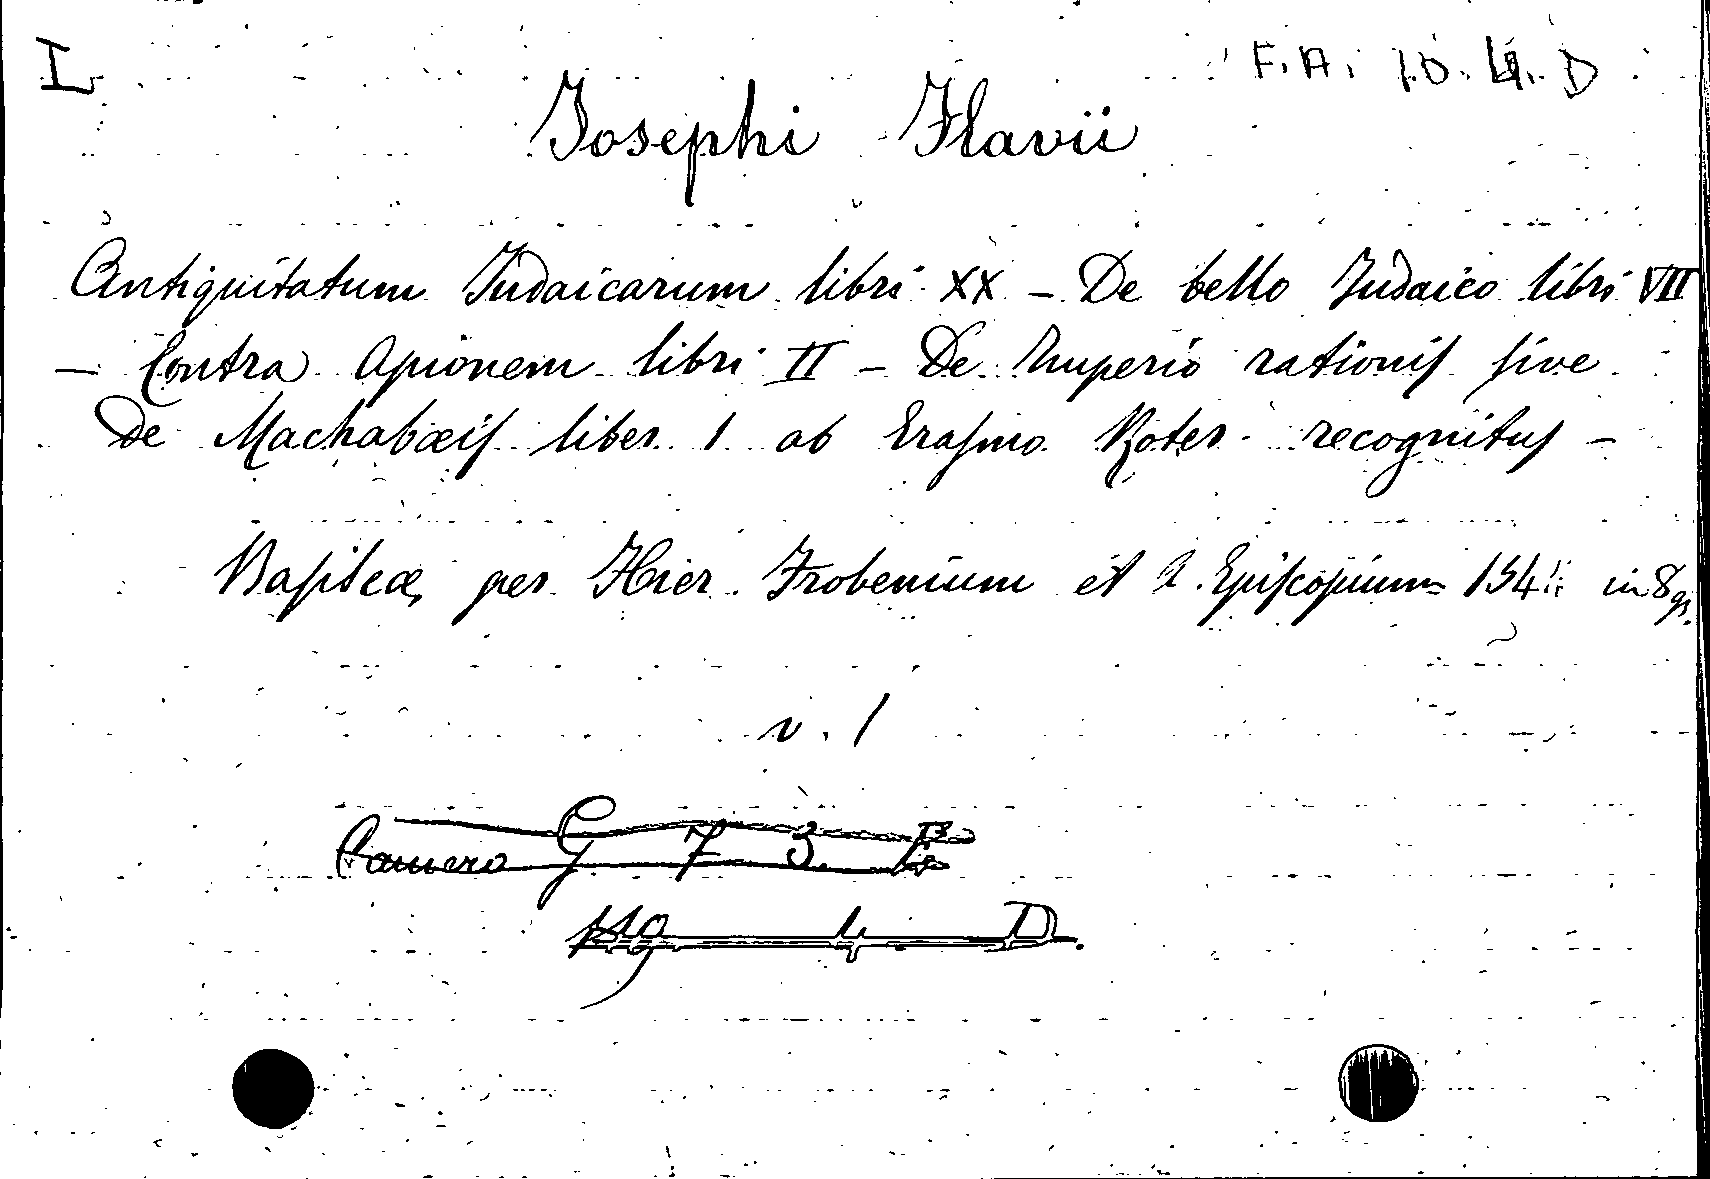 L
F.A. 10. 4. D
Josephi Flavii
Antiquitatum Judaicarum libri XX - De bello Judaico libri VII
- Contra Apionem libri II - De Imperio rationis sive
de Machabæis liber 1 ab Erasmo Roter. recognitus -
Basileæ, per Hier. Frobenium et N. Episcopium in 8 gr.
v. 1
Camera G 7 3.
4 D.